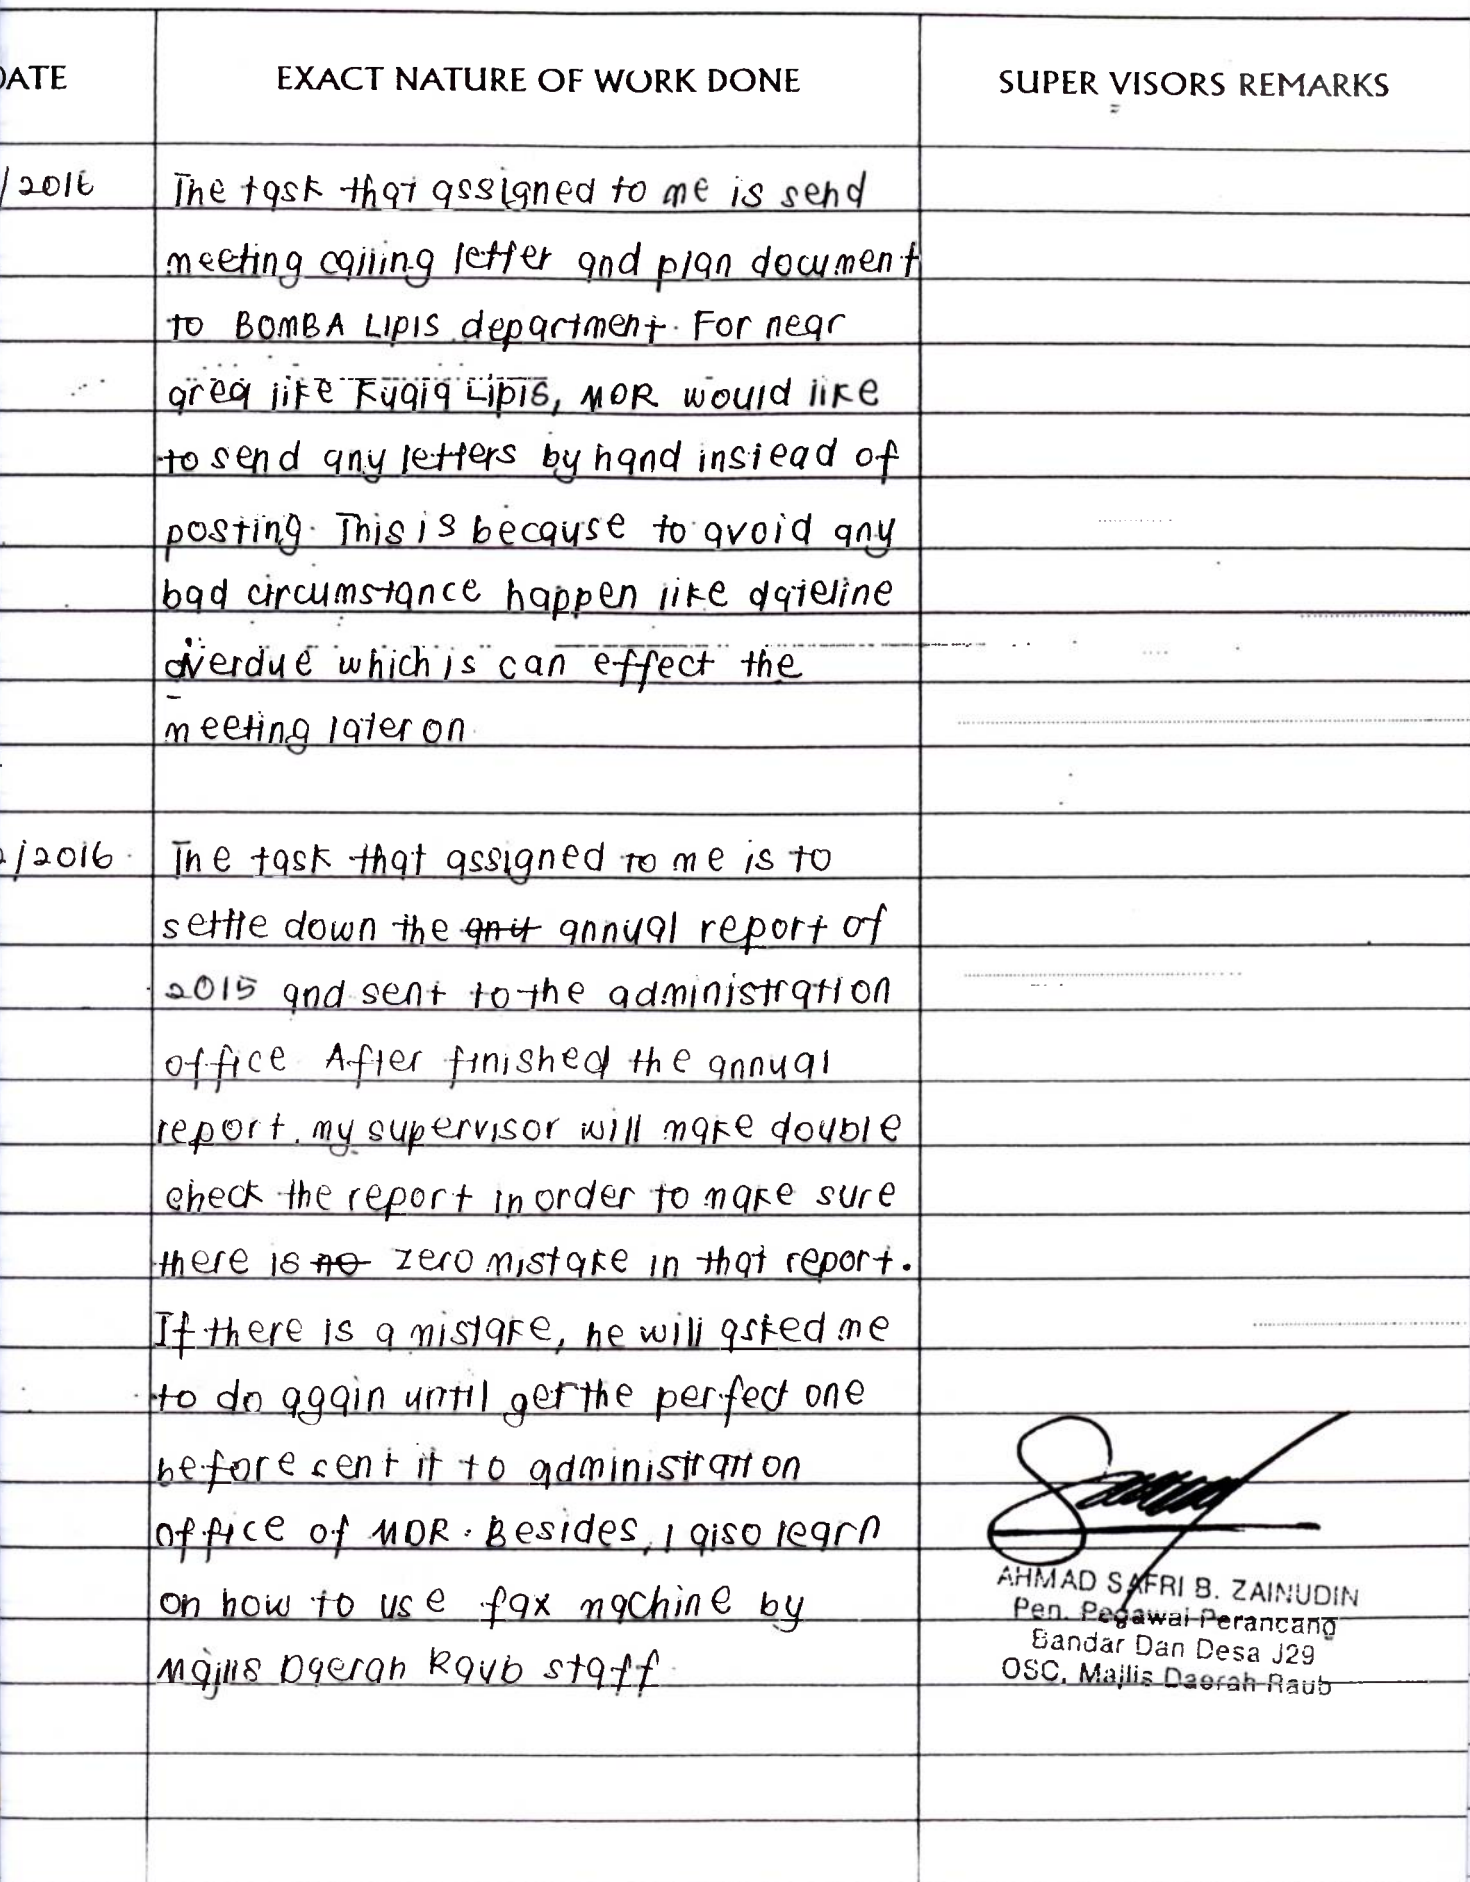 DATE EXACT NATURE OF WORK DONE SUPER VISORS REMARKS
/2016 The task that assigned to me is send
meeting calling letter and plan document
to BOMBA LIPIS department. For near
area like Kuala Lipis, MDR would like
to send any letters by hand instead of
posting. This is because to avoid any
bad circumstance happen like dateline
overdue which is can effect the
meeting later on
2/2016 The task that assigned to me is to
settle down the annual report of
2015 and sent to the administration
office After finished the annual
report, my supervisor will make double
check the report in order to make sure
there is no zero mistake in that report.
If there is a mistake, he will asked me
to do again until get the perfect one
before sent it to administration
office of MDR. Besides, I also learn
on how to use fax machine by
Majlis Daerah Raub staff.
AHMAD SAFRI B. ZAINUDIN
Pen. Pegawai Perancang
Bandar Dan Desa J29
OSC, Majlis Daerah Raub